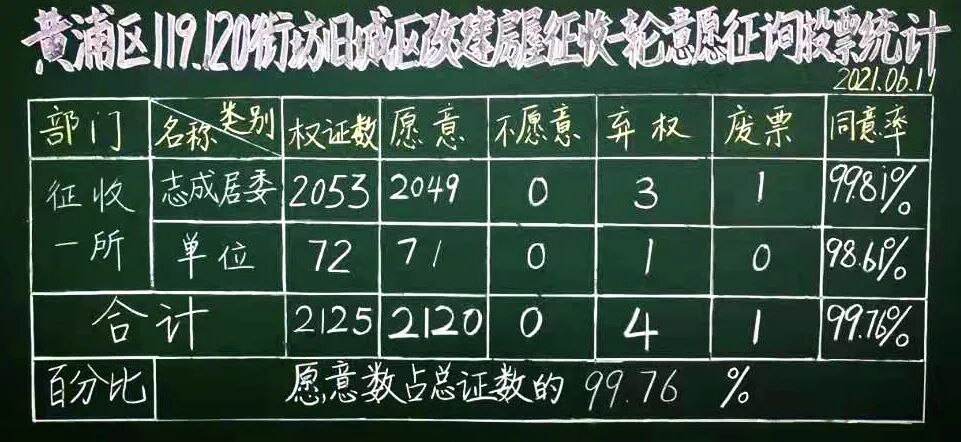 黄浦区119.120街坊旧城区改建房屋征收一轮意愿征询投票统计
2021.06.11
部门 名称 类别 权证数 愿意 不愿意 弃权 废票 同意率
征收一所 志成居委 2053 2049 0 3 1 99.81%
单位 72 71 0 1 0 98.61%
合计 2125 2120 0 4 1 99.76%
百分比 愿意数占总证数的 99.76 %